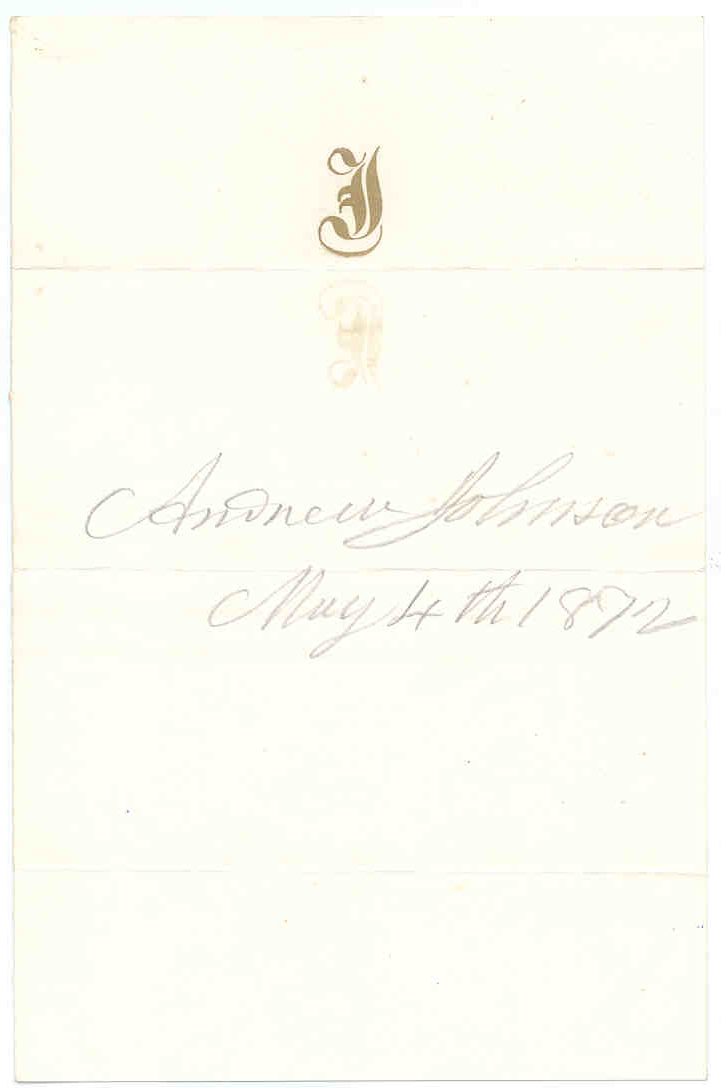 J
Andrew Johnson
May 4th 1872